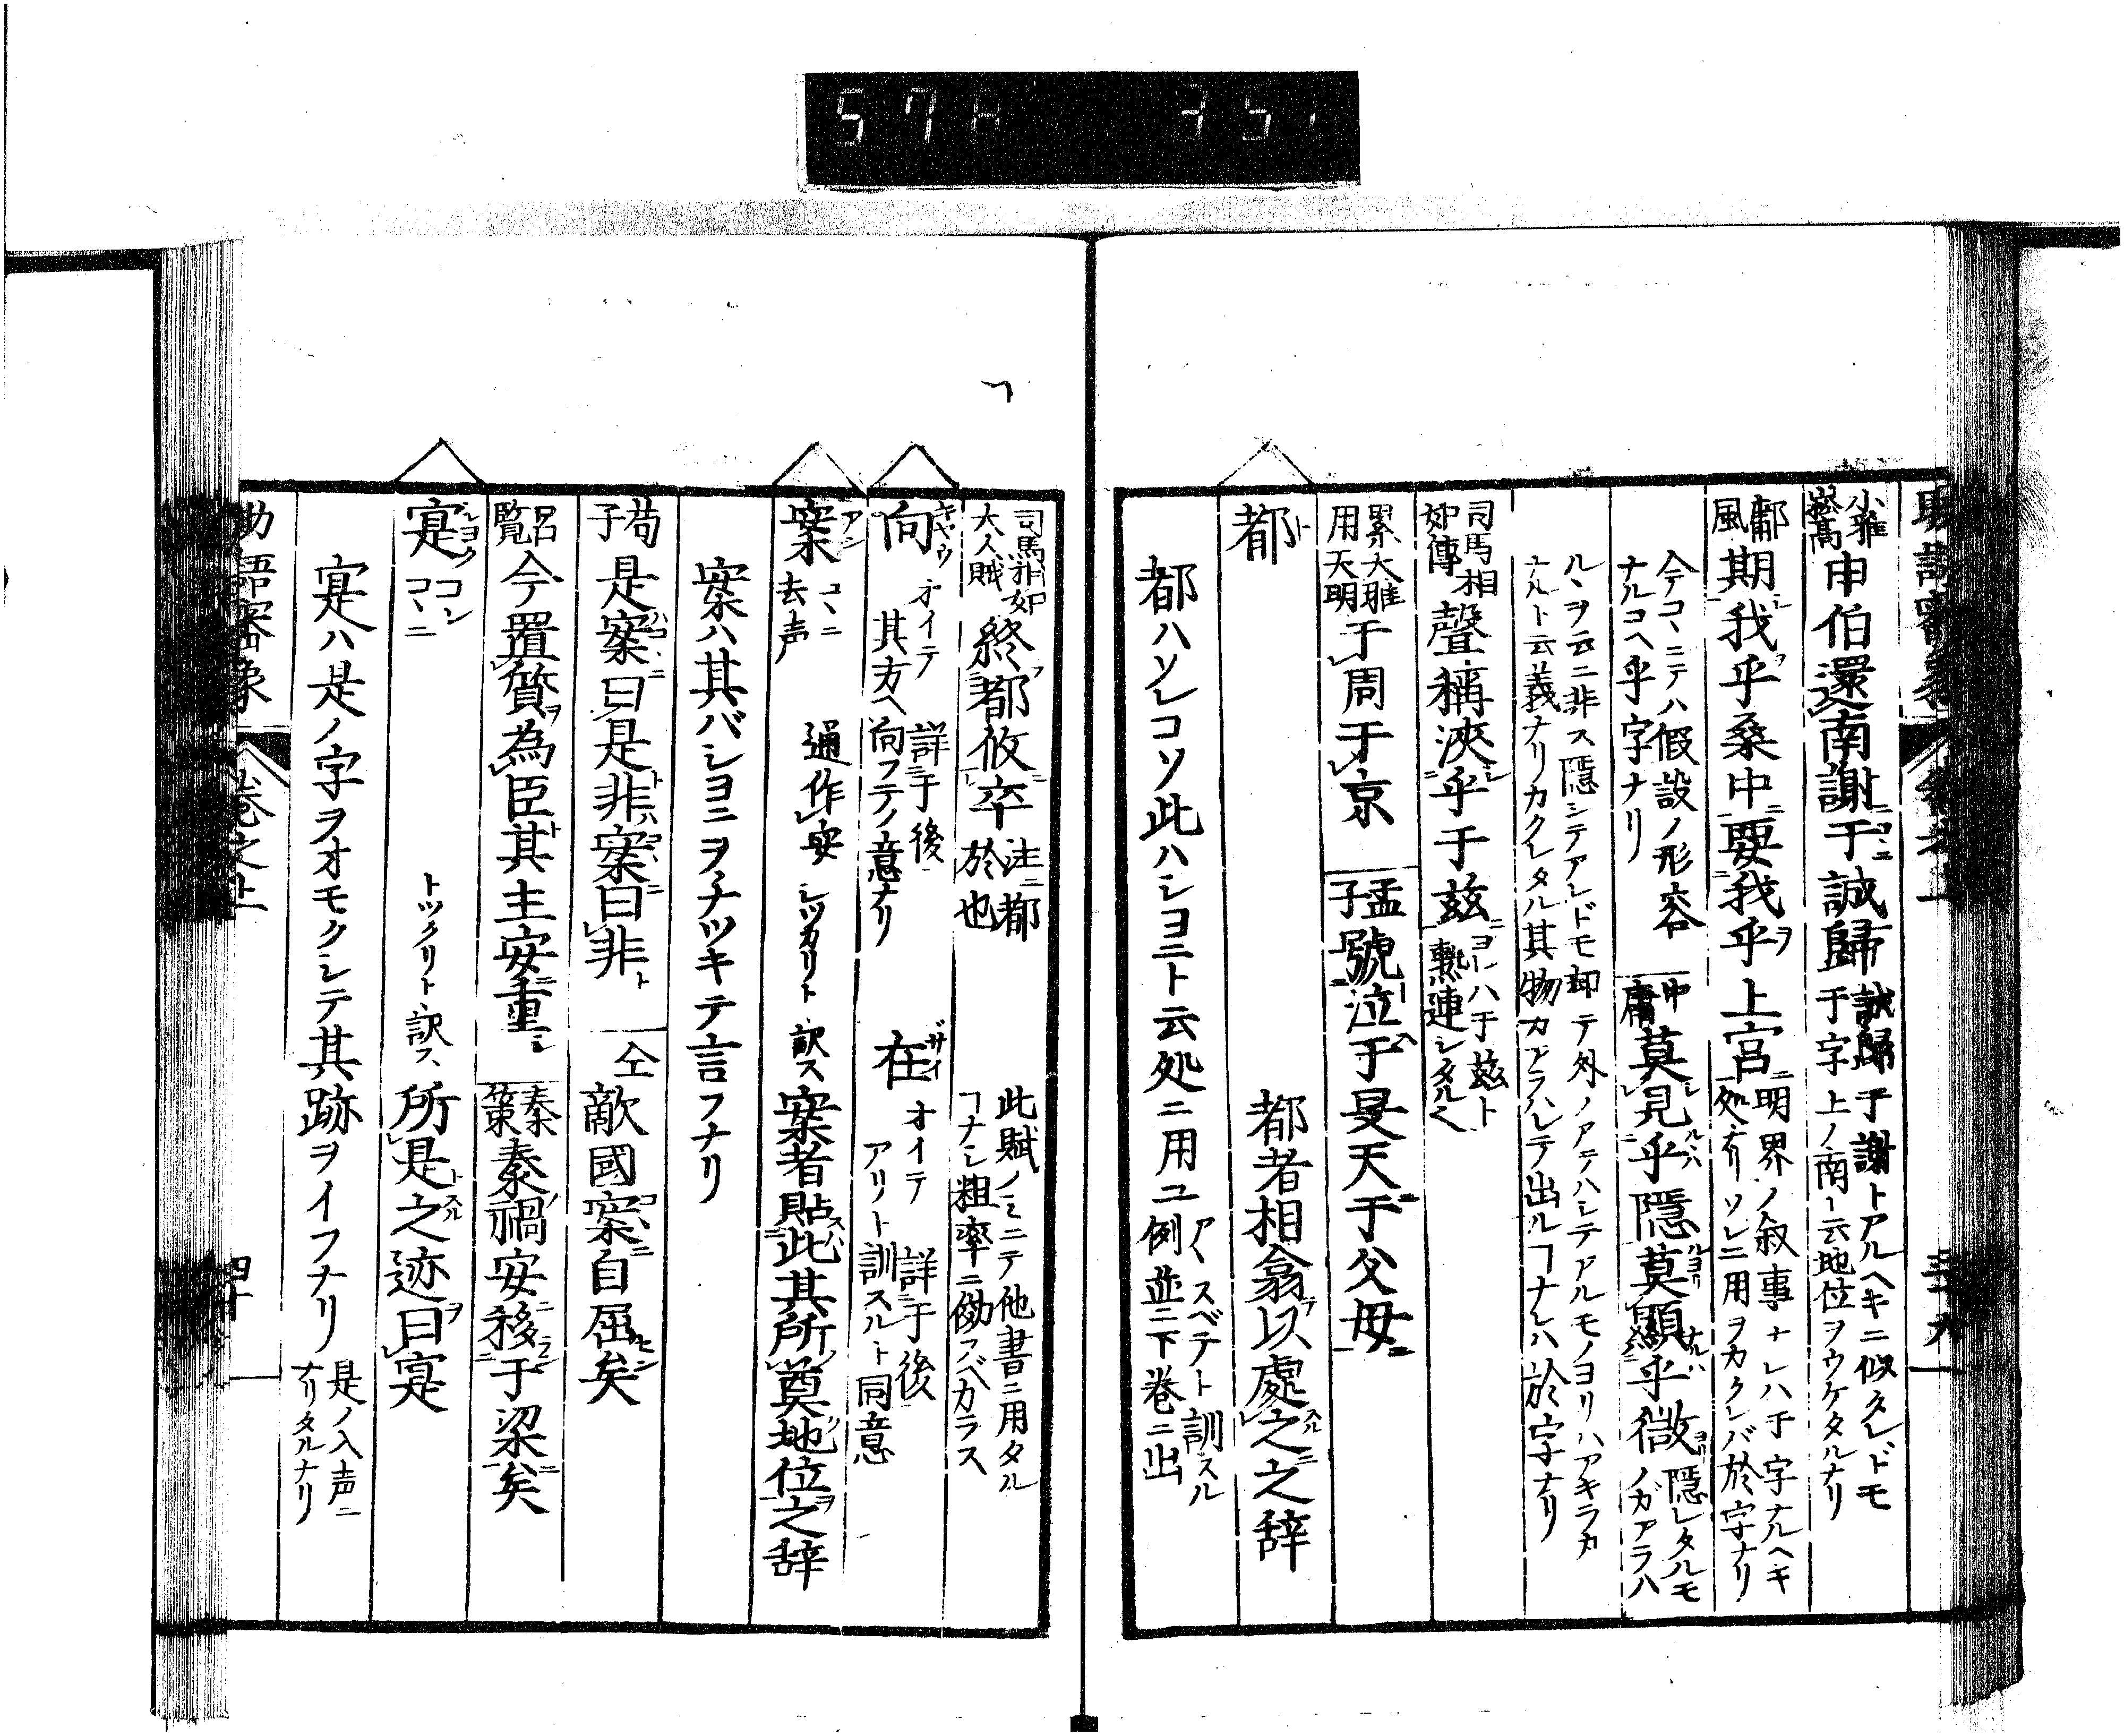 小雅崧高 申伯還南謝于誠歸 誠歸于謝トアルヘキニ似タレドモ于字上ノ南ト云地位ヲウケタルナリ
鄘風 期我乎桑中要我乎上宮 明界ノ叙事ナレハ于字ナルヘキ処ナリソレニ用ヲカクレバ於字ナリ
今テコヽニテハ假設ノ形容ナルコヘ乎字ナリ 中庸 莫見乎隱莫顯乎微 隱レタルモノガアラハ
ルヽヲ云ニ非ス隱シテアレドモ却テ外ノアテハシテアルモノヨリハアキラカナルト云義ナリカクレタル其物カアラハレテ出ルコナレハ於字ナリ
司馬相如傳 聲稱浹乎于茲 コレハ于茲ト熟連シタル也
累用 大雅天明 于周于京 孟子 號泣于旻天于父母
都 都者相翕以處之之辞
都ハソレコソ此ハシヨニト云処ニ用ユ スベテト訓スル例並ニ下巻ニ出
司馬相如大人賦 終都攸卒 注ニ都於也 此賦ノミニテ他書ニ用タルコナシ粗率ニ傚フベカラス
向 キヤウ オイテ 其方ヘ向フテノ意ナリ 詳于後 在 ザイ オイテ アリト訓スルト同意 詳于後
案 アン コヽニ 去声 通作安 シツカリト訳ス 案者貼此其所奠地位之辞
案ハ其バシヨニヲチツキテ言フナリ
荀子 是案曰是非案曰非 仝 敵國案自屈矣
呂覧 今置質為臣其主安重 秦策 秦禍安移于梁矣
寔 シヨク コレ コヽニ トツクリト訳ス 所是之迹曰寔
寔ハ是ノ字ヲオモクシテ其跡ヲイフナリ 是ノ入声ニナリタルナリ
助語審象 巻之上 四十